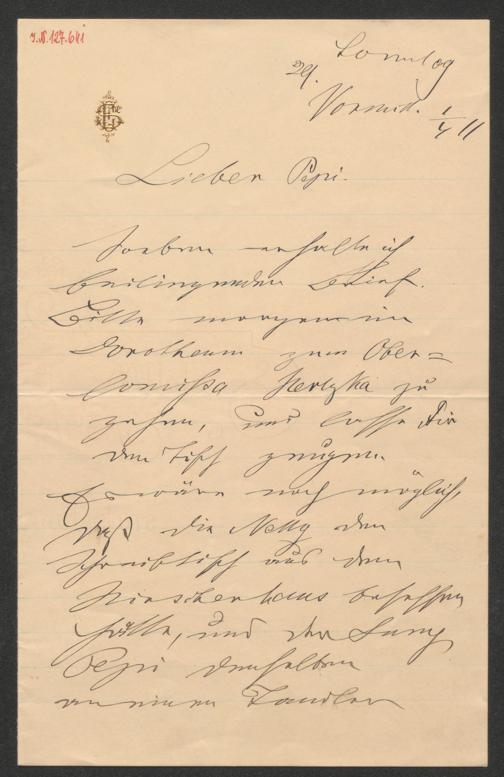 I.N. 127.641
Sonntag
29.
Vormitt. 1/4 11
Lieber Pepi.
Soeben erhalte ich
beiliegenden Brief.
Bitte morgen im
Dorotheum zum Ober=
Comissa Hertzka zu
gehen, und lasse Dir
den Tisch zeigen.
Es wäre noch möglich,
daß die Netty den
Schreibtisch aus dem
besessen
hätte, und der
Pepi denselben
an einen Tandler